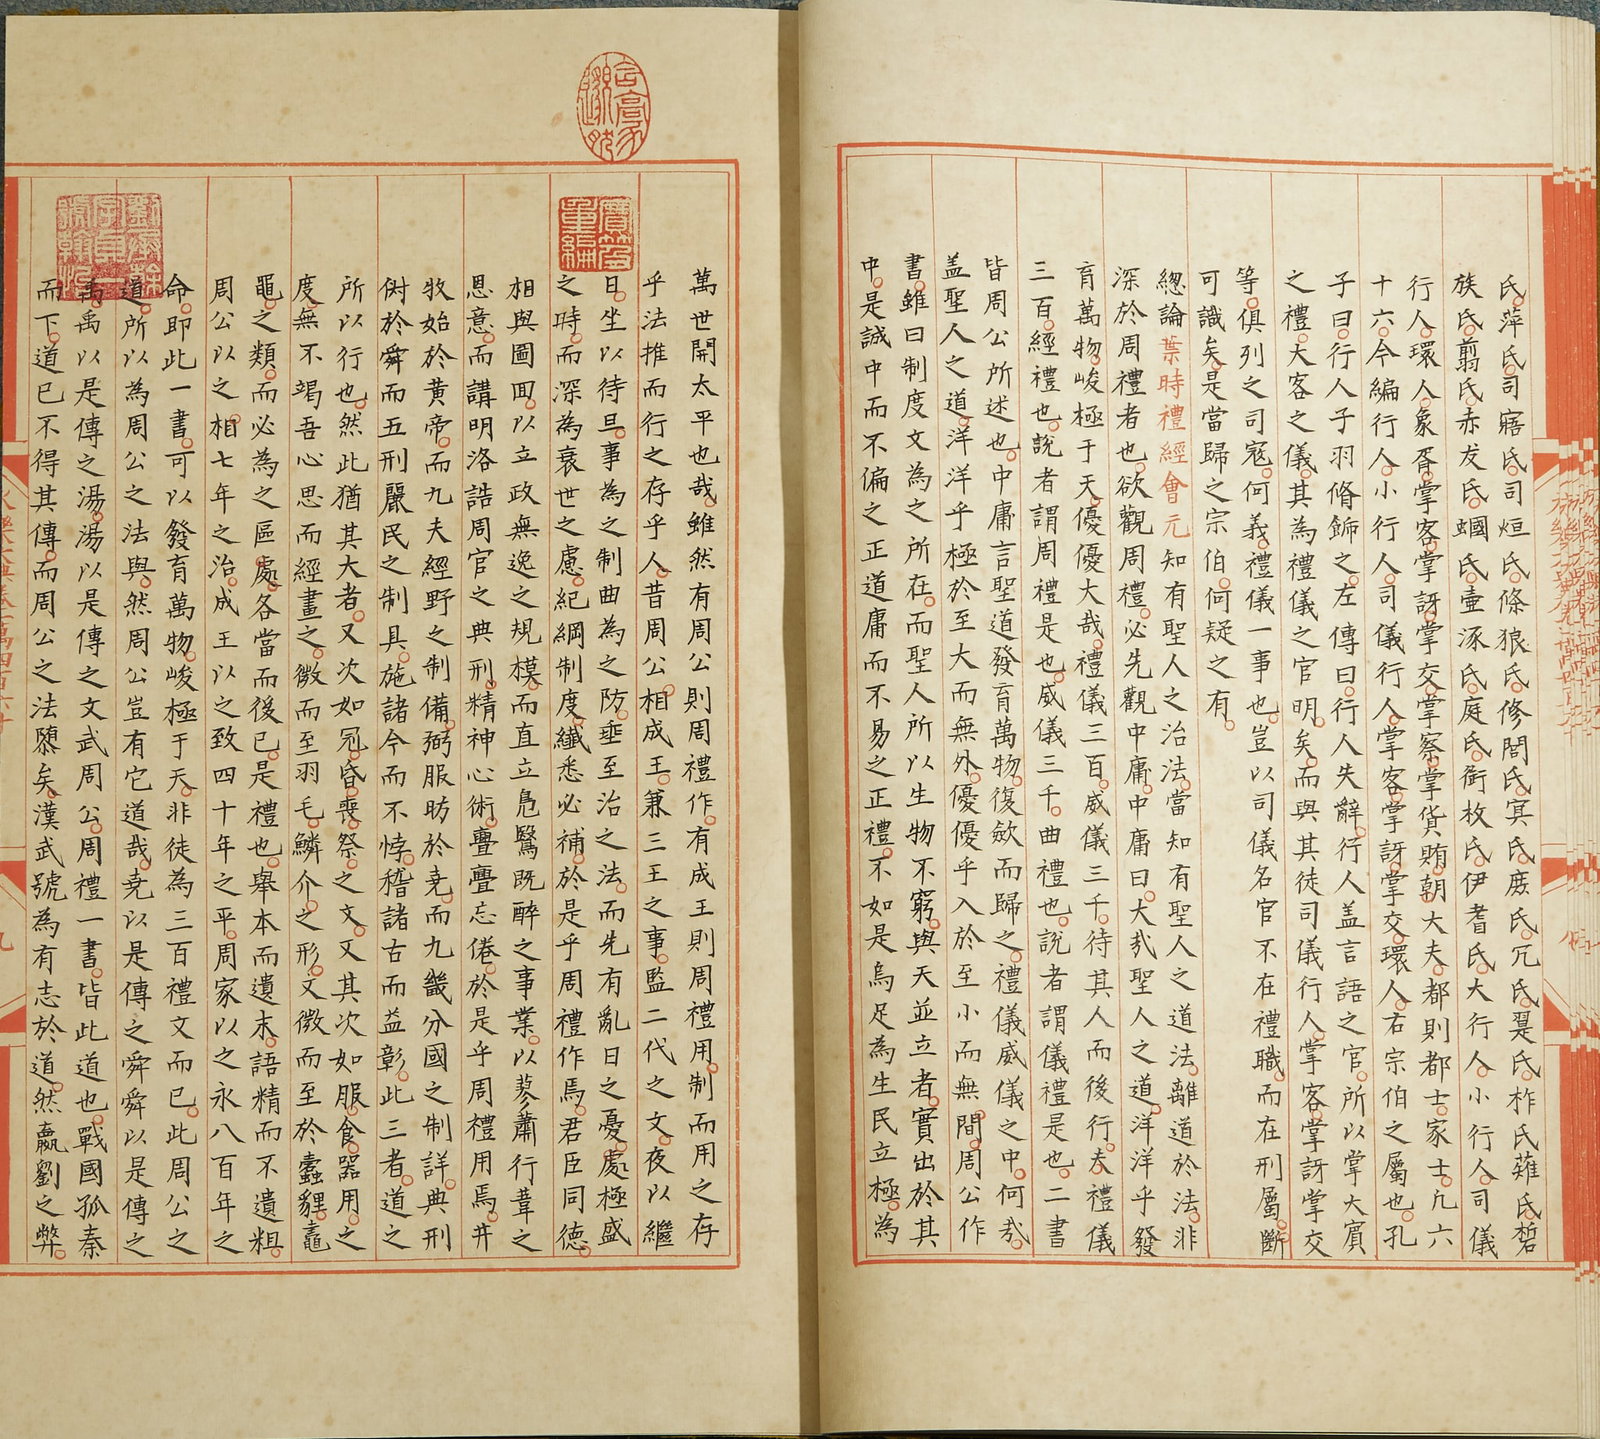 氏。萍氏。司寤氏。司烜氏。條狼氏。修閭氏。冥氏。庶氏。穴氏。翨氏。柞氏。薙氏。硩
族氏。翦氏。赤犮氏。蟈氏。壺涿氏。庭氏。銜枚氏。伊耆氏。大行人。小行人。司儀
行人。環人。象胥。掌客。掌訝。掌交。掌察。掌貨賄。朝大夫。都則都士。家士。凡六
十六。今編行人。小行人。司儀行人。掌客。掌訝。掌交。環人。右宗伯之屬也。孔
子曰。行人子羽脩飾之。左傳曰。行人失辭。行人盖言語之官。所以掌大賓
之禮。大客之儀。其為禮儀之官明矣。而與其徒司儀行人。掌客。掌訝掌交
等。俱列之司寇。何義。禮儀一事也。豈以司儀名官不在禮職。而在刑屬。斷
可識矣。是當歸之宗伯。何疑之有。
總論葉時禮經會元知有聖人之治法。當知有聖人之道法。離道於法。非
深於周禮者也。欲觀周禮。必先觀中庸。中庸曰。大哉聖人之道。洋洋乎發
育萬物。峻極于天。優優大哉。禮儀三百。威儀三千。待其人而後行。夫禮儀
三百。經禮也。說者謂周禮是也。威儀三千。曲禮也。說者謂儀禮是也。二書
皆周公所述也。中庸言聖道發育萬物。復歛而歸之。禮儀威儀之中。何哉。
盖聖人之道。洋洋乎極於至大而無外。優優乎入於至小而無間。周公作
書。雖曰制度文為之所在。而聖人所以生物不窮。與天並立者。實出於其
中。是誠中而不偏之正道庸而不易之正禮。不如是烏足為生民立極。為
萬世開太平也哉。雖然有周公則周禮作。有成王則周禮用。制而用之存
乎法推而行之存乎人。昔周公。相成王。兼三王之事。監二代之文。夜以繼
日。坐以待旦。事為之制曲為之防。垂至治之法。而先有亂日之憂。處極盛
之時。而深為衰世之慮。紀綱制度。纖悉必補。於是乎周禮作焉。君臣同德。
相與圖回。以立政無逸之規模。而直立鳧鷖既醉之事業。以蓼蕭行葦之
恩意。而講明洛誥周官之典刑。精神心術。亹亹忘倦。於是乎周禮用焉。井
牧始於黄帝。而九夫經野之制備。弼服昉於堯。而九畿分國之制詳。典刑
侀於舜而五刑麗民之制具。施諸今而不悖。稽諸古而益彰。此三者。道之
所以行也。然此猶其大者。又次如冠。昏。喪。祭。之文。又其次如服。食。器用。之
度。無不竭吾心思而經畫之。微而至羽毛。鱗介。之形。又微而至於蠹貍。鼃
黽。之類。而必為之區處。各當而後已。是禮也。舉本而遺末。語精而不遺粗。
周公以之。相七年之治。成王以之致四十年之平。周家以之永八百年之
命。即此一書。可以發育萬物。峻極于天。非徒為三百禮文而已。此周公之
道。所以為周公之法與。然周公豈有它道哉。堯以是傳之舜舜以是傳之
禹。禹以是傳之湯。湯以是傳之文武周公。周禮一書。皆此道也。戰國孤秦
而下。道已不得其傳。而周公之法隳矣。漢武號為有志於道。然嬴劉之弊。